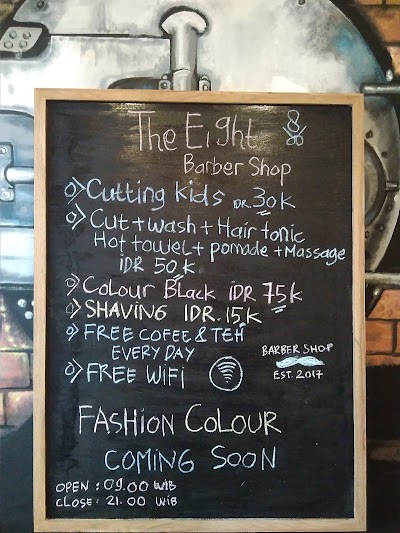 The Ei9ht
Barber Shop
Cutting Kids IDR. 30K
Cut + wash + Hair tonic
Hot towel + pomade + Massage
IDR 50K
Colour Black IDR 75K
SHAVING IDR. 15K
FREE COFEE & TEH
EVERY DAY
FREE WiFi
BARBER SHOP
EST. 2017
FASHiON COLOUR
COMING SOON
OPEN : 09.00 WIB
CLOSE : 21.00 WIB